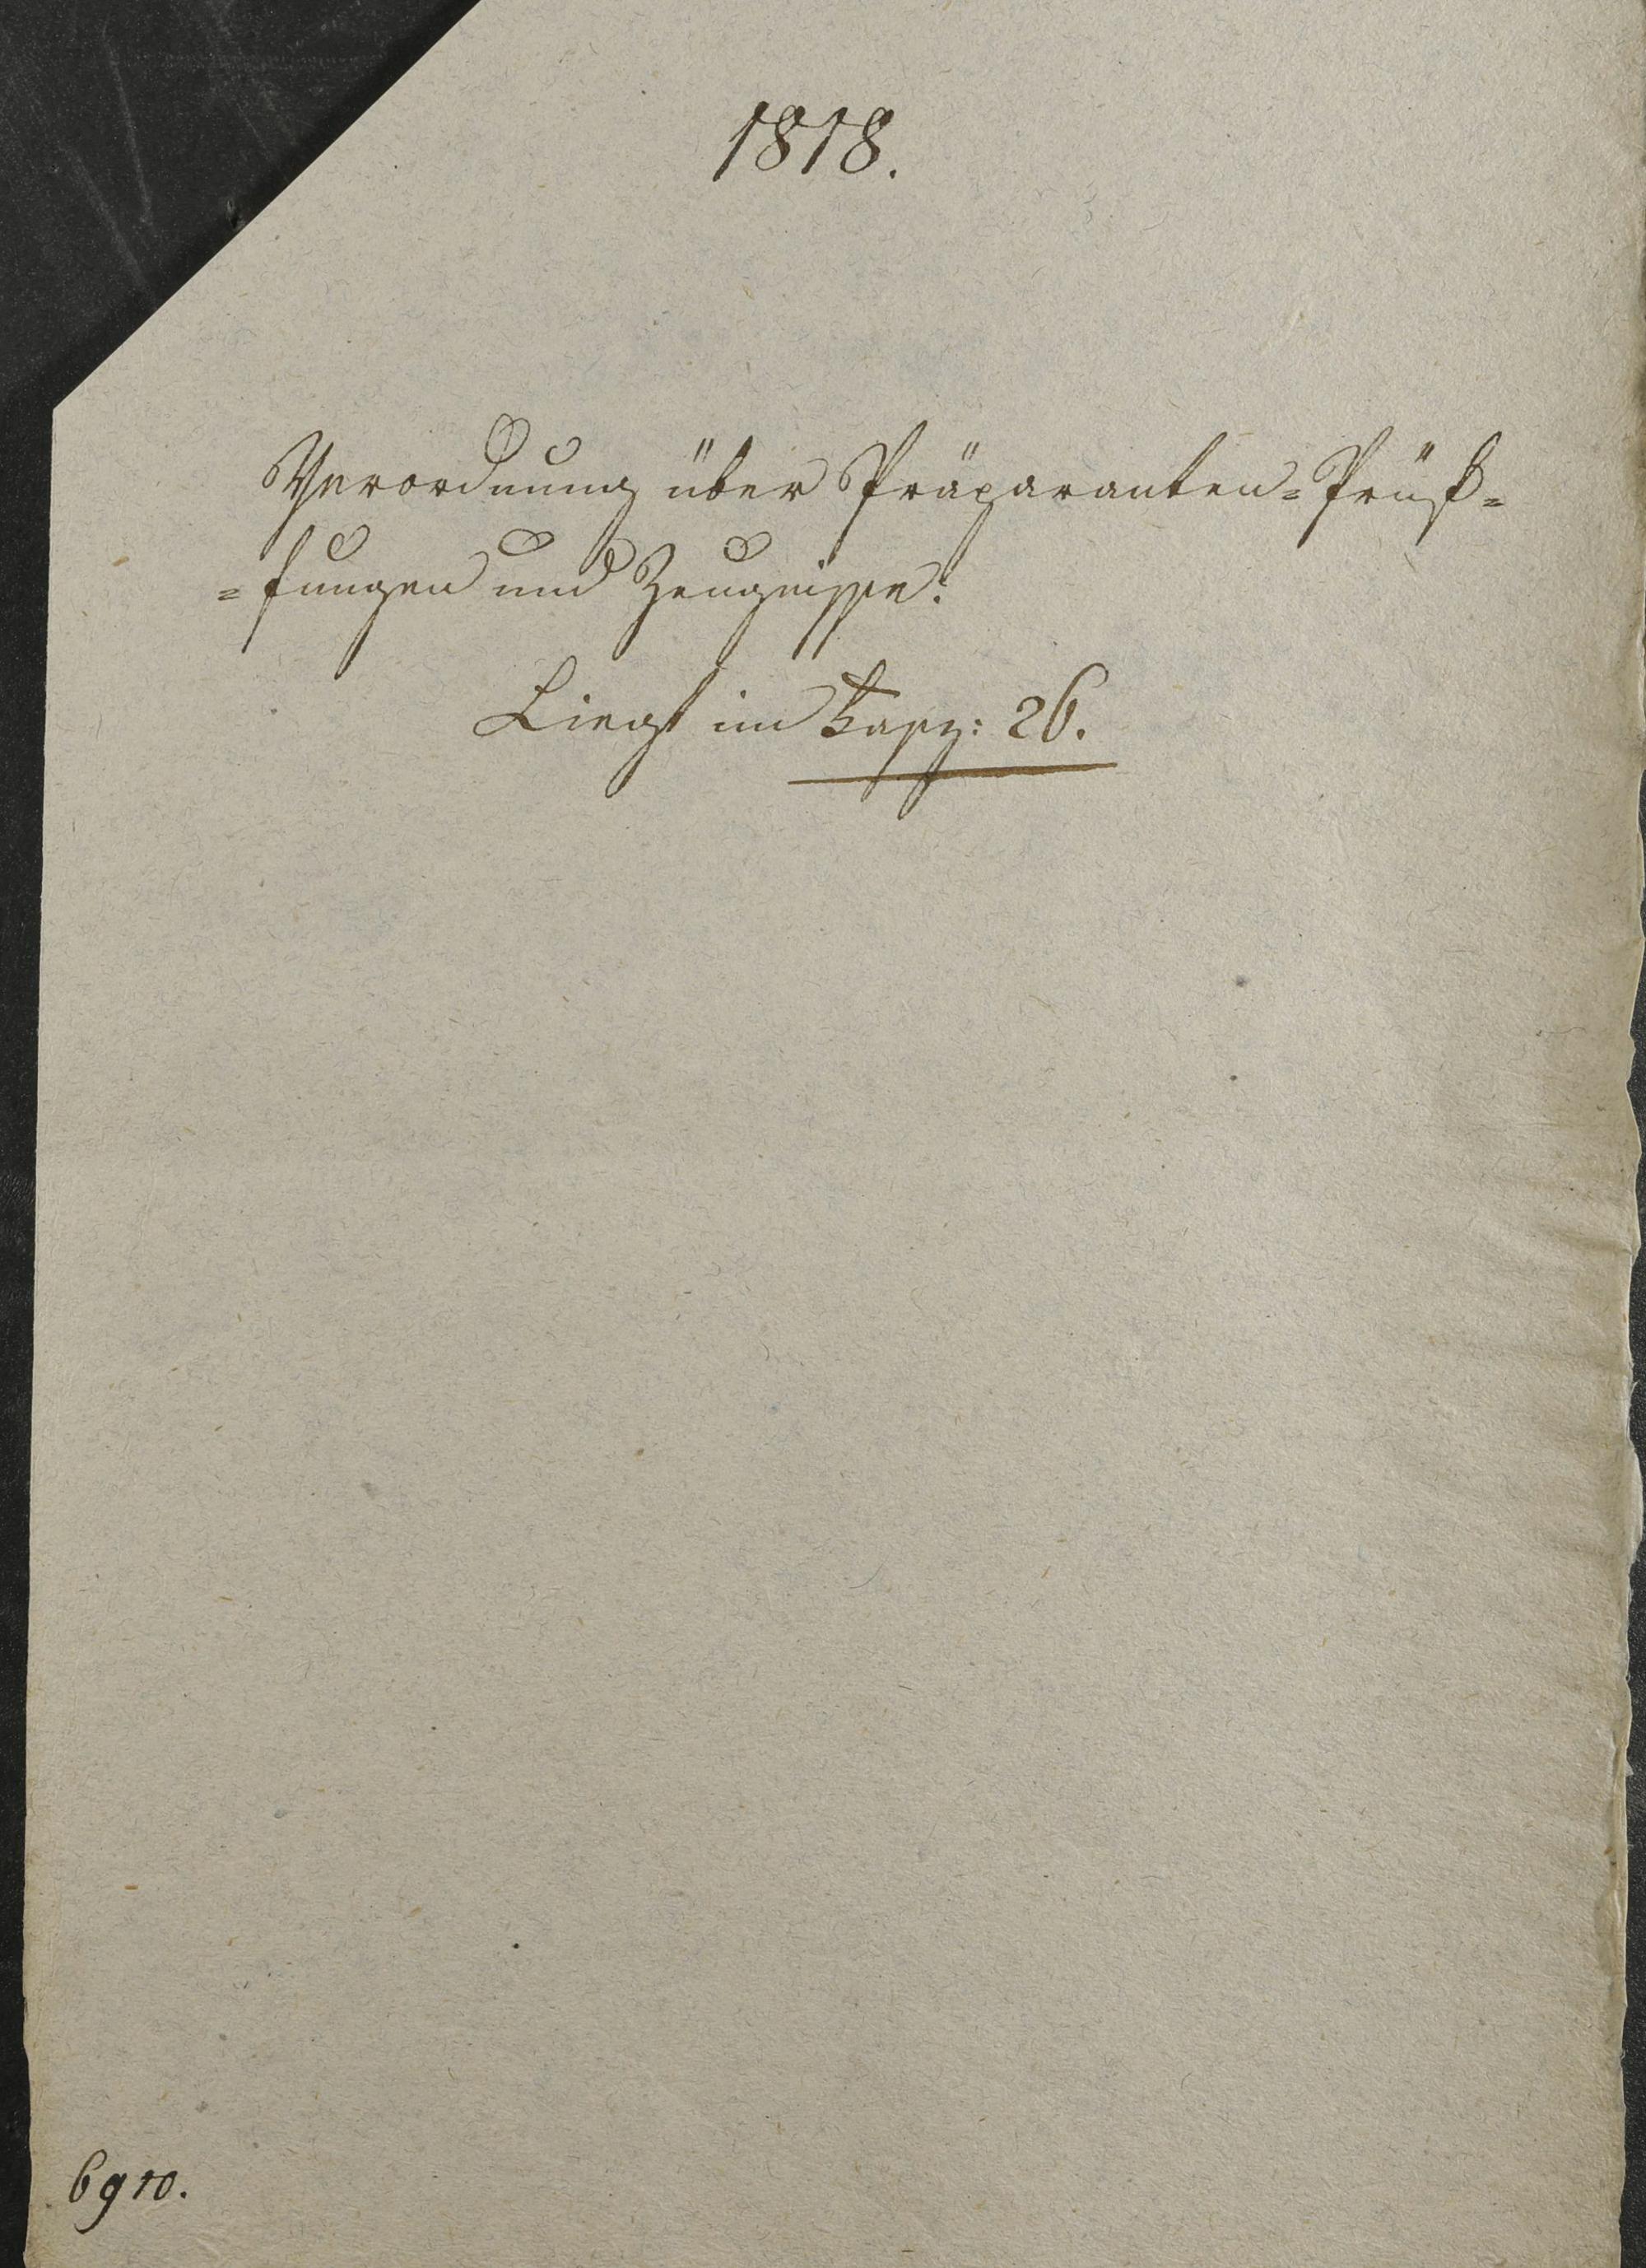 1818.
Verordnung über Präparanten=Prüf=
=fungen und Zeugnisse:
Liegt im Fasz: 26.
6910.